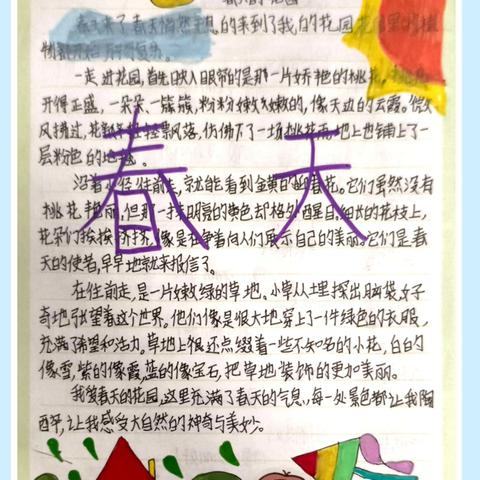 春天的花园
春天来了春天悄然无息的来到了我的花园花园里的植
物都开始
一走进花园,首先映入眼帘的是那一片娇艳的桃花。桃花
开得正盛,一朵朵、一簇簇,粉粉嫩嫩的,像天边的云霞。微
风拂过,花瓣轻轻飘落,仿佛下了一场桃花雨地上也铺上了一
层粉色的地毯。
沿着小径往前走,就能看到金黄的迎春花。它们虽然没有
桃花艳丽,但那一抹明亮的黄色却格外醒目,细长的花枝上,
花朵们挨挨挤挤,像是在争着向人们展示自己的美丽。它们是春
天的使者,早早地就来报信了。
在往前走,是一片嫩绿的草地。小草从土里探出脑袋,好
奇地张望着这个世界。他们像是很大地穿上了一件绿色的衣服,
充满了希望和活力。草地上很还点缀着一些不知名的小花,白的
像雪,紫的像霞,蓝的像宝石,把草地装饰的更加美丽。
我爱春天的花园,这里充满了春天的气息,每一处景色都让我陶
醉,让我感受大自然的神奇与美妙。
春天